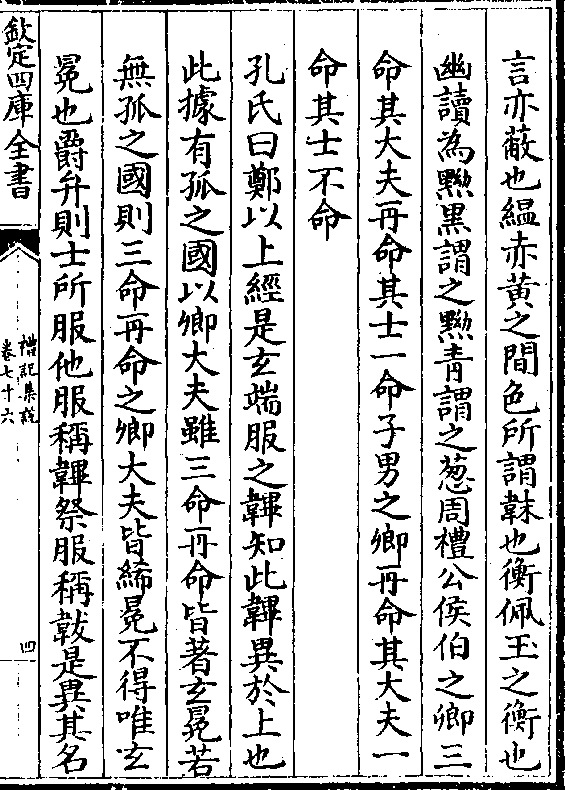 言亦蔽也緼赤黃之間色所謂韎也衡佩玉之衡也
幽讀為黝黑謂之黝青謂之葱周禮公侯伯之卿三
命其大夫再命其士一命子男之卿再命其大夫一
命其士不命
孔氏曰鄭以上經是玄端服之韠知此韠異於上也
此據有孤之國以卿大夫雖三命再命皆著玄冕若
無孤之國則三命再命之卿大夫皆絺冕不得唯玄
冕也爵弁則士所服他服稱韠祭服稱韍是異其名
欽定四庫全書
禮記集說
卷七十六
四